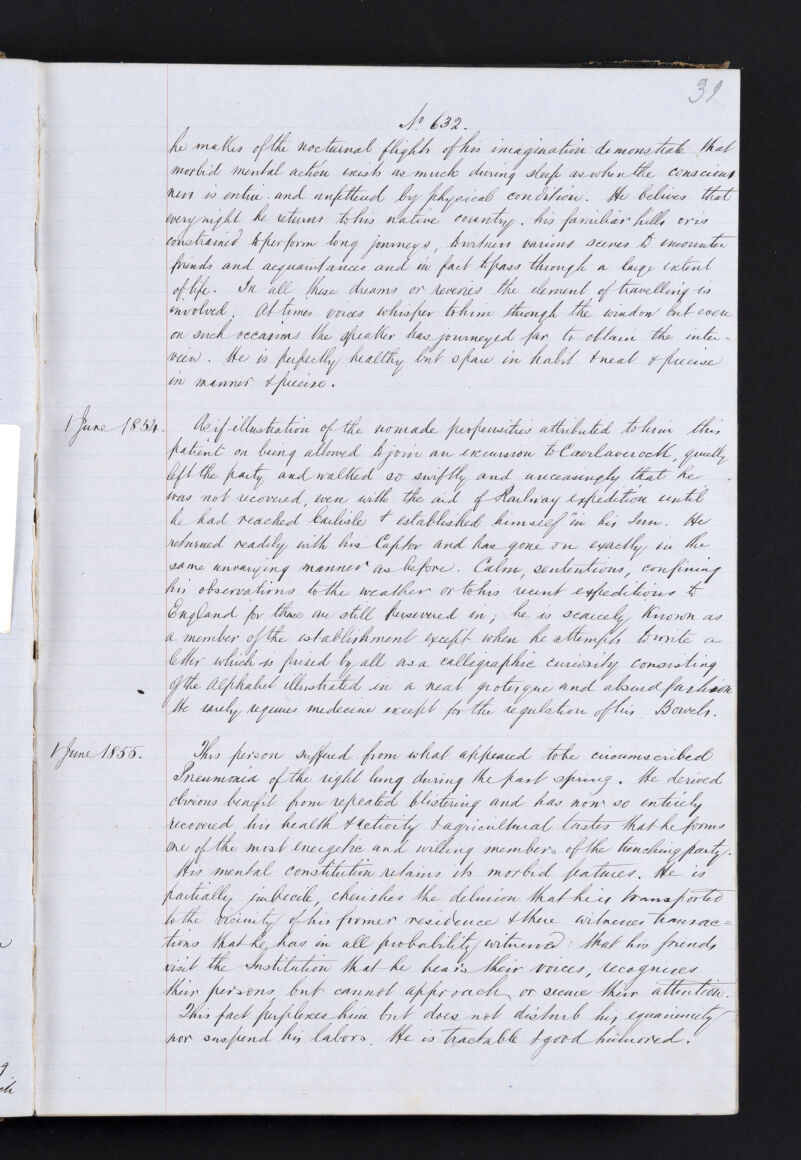 39
No. 632.
he makes of the nocturnal flights of his imagination demonstrate that
morbid mental action exists as much during sleep as when the conscious
ness is entire and unfettered by physical condition. He belives that
every night he returns to his native country, his familiar hills or is
constrained to perform long journeys, to witness various scenes to encounter
friends and acquaintances and in fact to pass through a large extent
of life. In all these dreams or reveries the element of travelling is
involved. At times voices whisper to him through the window but even
on such occasions the speaker has journeyed far to obtain the inter-
view. He is perfectly healthy but spare in habit & neat & precise
in manner & precise.
1 June 1854. As if illustration of the nomade propensities attributed to him this
patient on being allowed to join an excursion to Caerlaverock, quietly
left the party and walked so swiftly and unceasingly that he
was not recovered, even with the aid of Railway expedition until
he had reached Carlisle & established himself "in his Inn. He
returned readily with his Captor and has gone on exactly in the
same unvarying manner as before. Calm, sententious, confining
his observations to the weather or to his recent expeditions to
England for these are still persevered in; he is scarcely known as
a member of the establishment except when he attempts to write a
letter which is prized by all as a calligraphic curiosity consisting
of the Alphabet illustrated in a neat grotesque and absurd fashion
He rarely requires medicine except for the regulation of his Bowels.
1 June 1855. This person suffered from what appeared to be circumscribed
Pneumonia of the right lung during the past spring. He derived
obvious benefit from repeated blistering and has now so entirely
recovered his health & activity & agricultural tastes that he forms
one of the most energetic and willing members of the trenching party.
His mental constitution retains its morbid features. He is
partially imbecile, cherishes the delusion that he is transported
to the vicinity of his former residence & there witnesses transac=
tions that he has in all probability witnessed: that his friends
visit the Institution that he hears their voices, recognises
their persons but cannot approach or secure their attention.
This fact perplexes him but does not disturb his equanimity
nor suspend his labors. He is tractable & good humored.